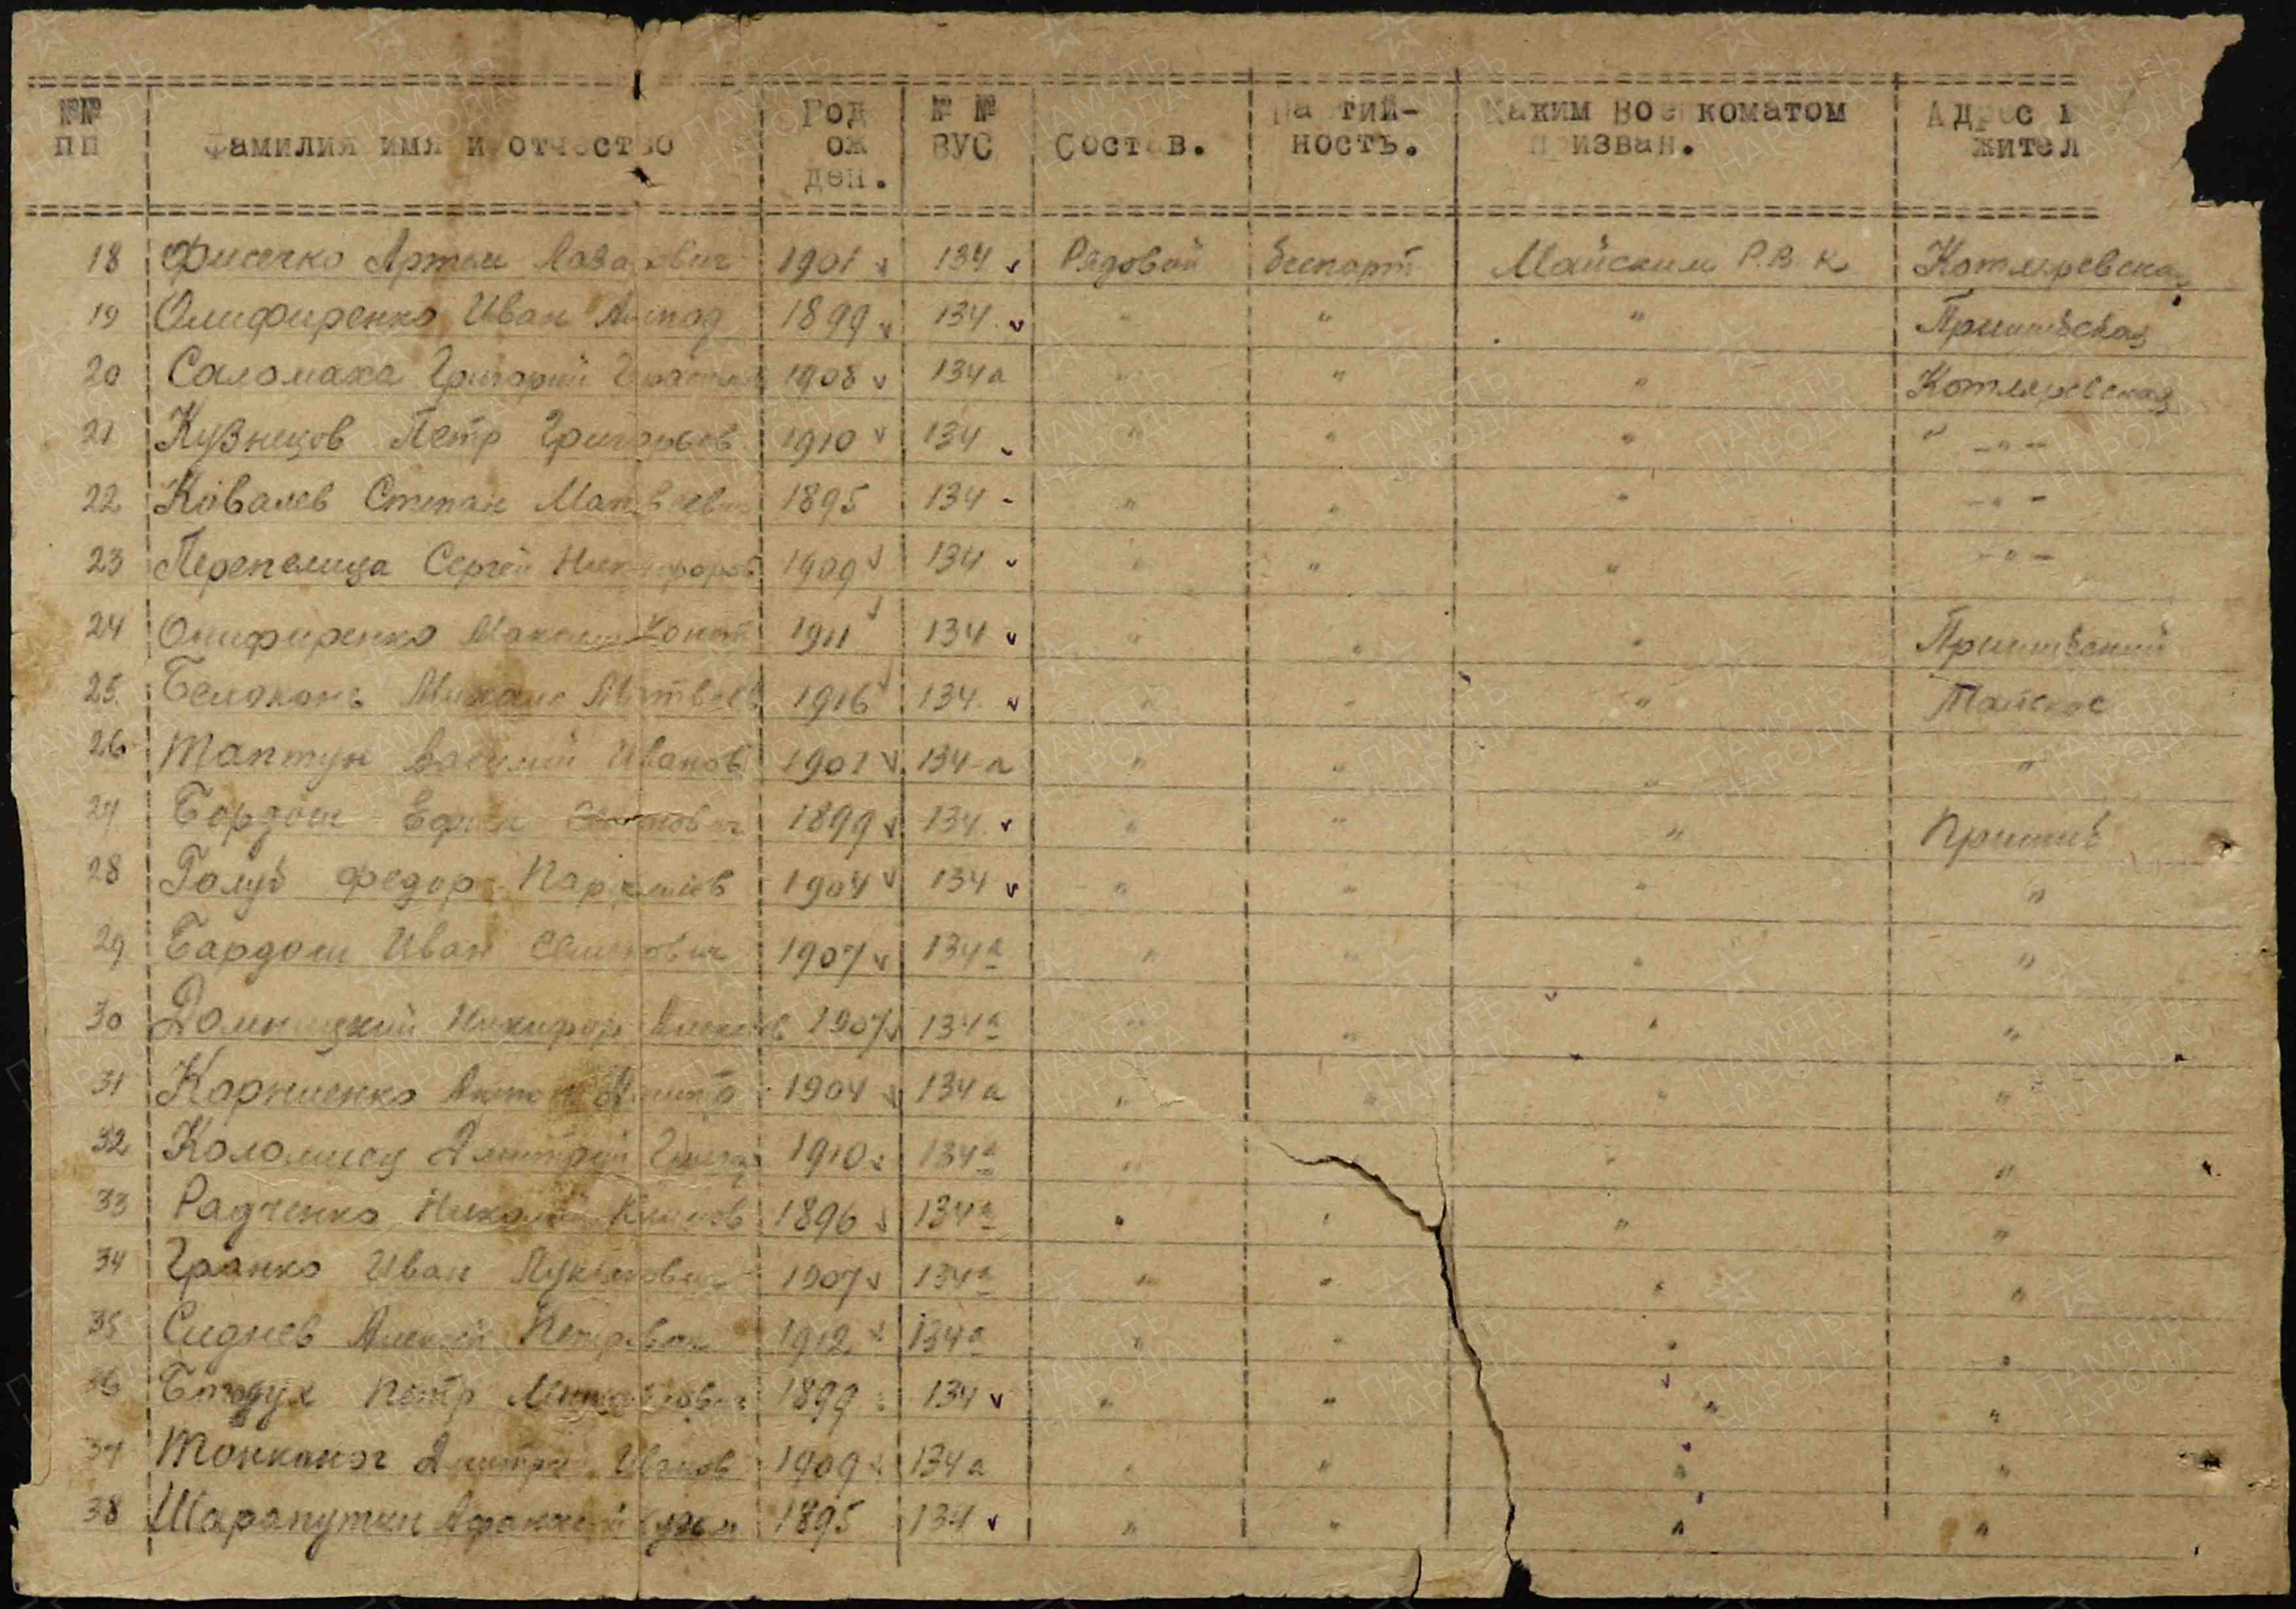 №№ пп | Фамилия имя и отчество | Год рож ден. | № № ВУС | Состав. | Партий- ность. | Каким Военкоматом призван. | Адрес жител
18 Фисечко Артем 1901 134 Рядовой беспарт Майским Р.В.К Котляревская
19 Олифиренко Иван 1899 134 " " " Пришибская
20 Саломаха Григорий 1908 134а " " " Котляревская
21 Кузнецов Петр Григорьев 1910 134 " " " " -"-
22 Ковалев Степан Матвеевич 1895 134 " " " -"-
23 Перепелица Сергей Никифоров 1909 134 " " " -"-
24 Олифиренко Максим 1911 134 " " " Пришибский
25 Белоконь Михаил Матвеев 1916 134 " " " Майское
26 Таптун Василий Иванов 1901 134-а " " " "
27 Бордош Ефим 1899 134 " " " Пришиб
28 Голуб Федор 1904 134 " " " "
29 Бардош Иван Семенович 1907 134а " " " "
30 Никифор 1907 134а " " " "
31 Корниенко Антон 1904 134а " " " "
32 Коломиец Дмитрий 1910 134а " " "
33 Радченко Николай 1896 134а " " " "
34 Гранко Иван Лукьянович 1907 134а " " " "
35 Сиднев Алексей Петрович 1912 134а " " " "
36 Петр 1899 134 " " " "
37 Тонконог Дмитрий Иванов 1909 134а " " " "
38 Шарапуткин Афанасий 1895 134 " " " "